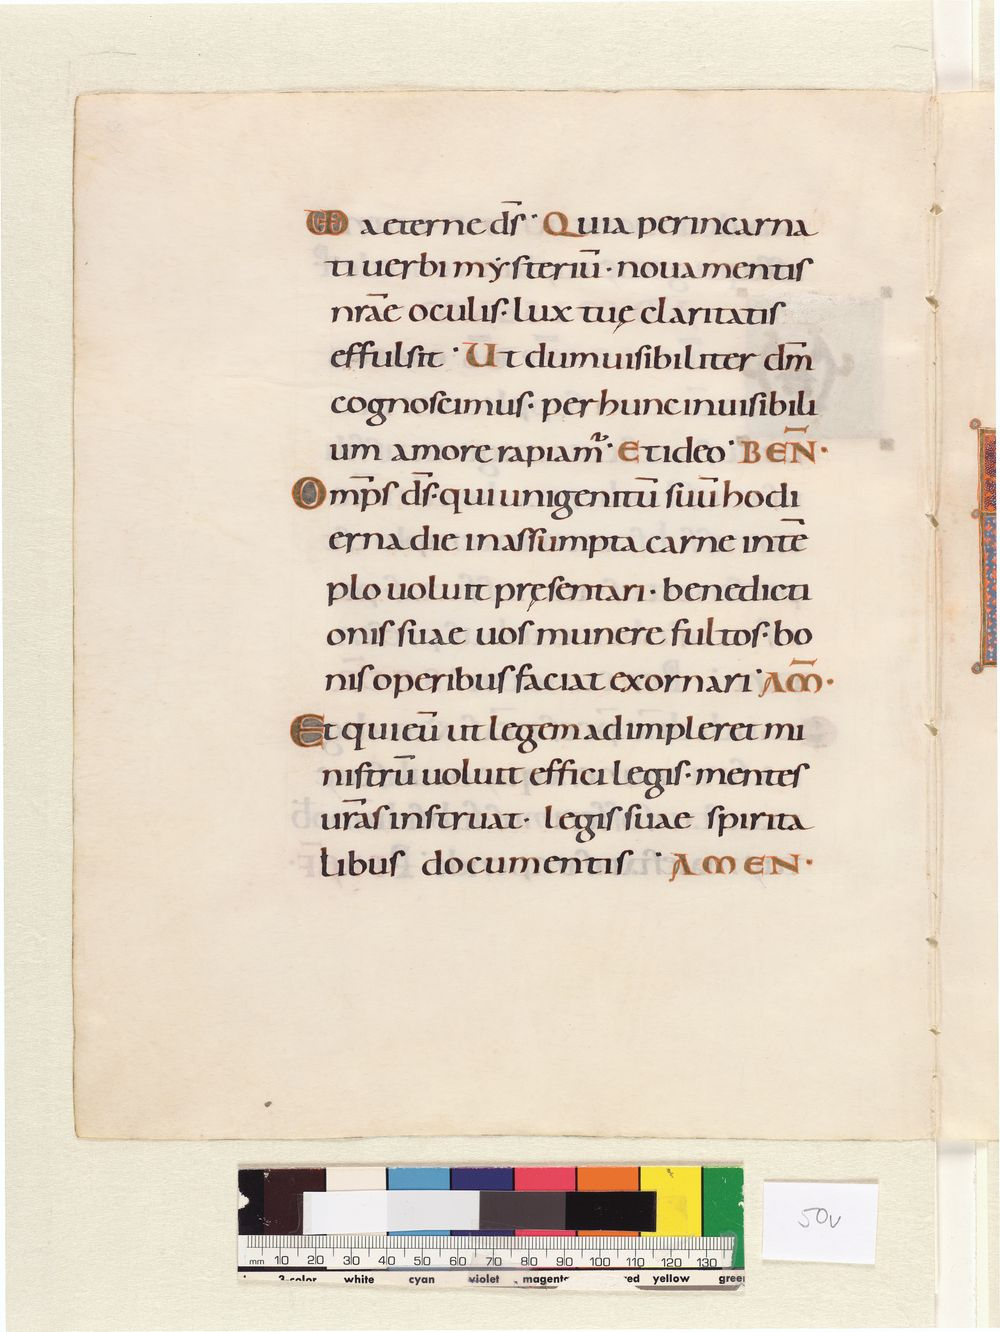 UD aeterne dſ̄· Quia perincarna
ti uerbi mẏſteriū· noua mentiſ
nrāe oculiſ· lux tuę claritatiſ
effulſit· Ut dumuiſibiliter dm̄
cognoſcimuſ· per hunc inuiſibili
um amore rapiam᷑· Et ideo· BEN̄·
Omp̄ſ dſ̄· qui unigenitū ſuū hodi
erna die in aſſumpta carne in tē
plo uoluit pręſentari· benedicti
oniſ ſuae uoſ munere fultoſ· bo
niſ operibuſ faciat exornari· AM̄·
Et qui eū ut legem adimpleret mi
niſtrū uoluit effici legiſ· menteſ
urāſ inſtruat· legiſ ſuae ſpirita
libuſ documentiſ· AMEN·
50v
mm 10 20 30 40 50 60 70 80 90 100 110 120 130
3-color white cyan violet magenta red yellow green